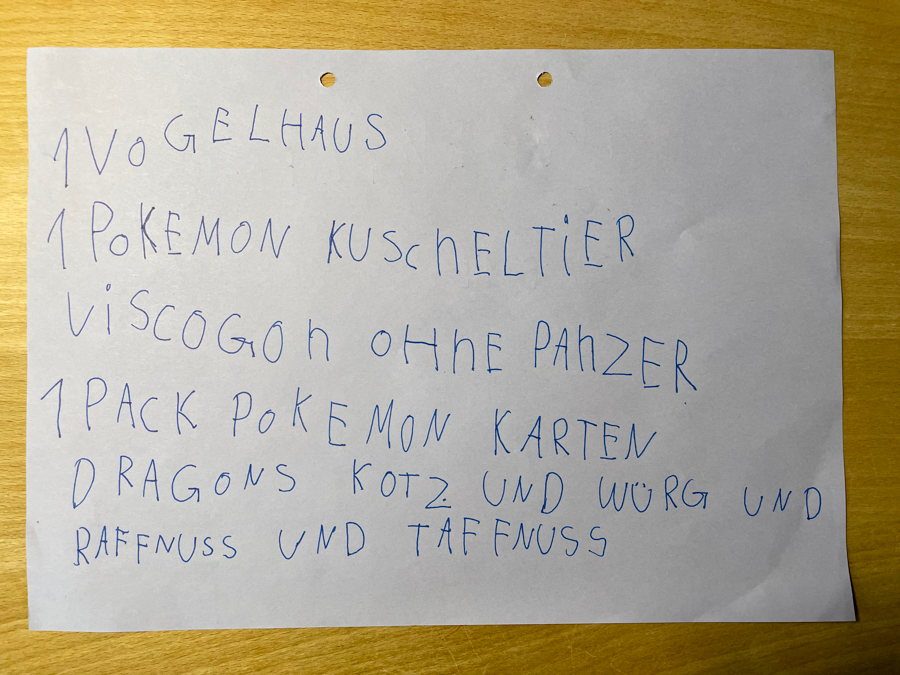 1 VOGELHAUS
1 POKEMON KUSChELTiER
ViSCOGOn OHnE PAnZER
1 PACK POKEMON KARTEN
DRAGONS KOTZ UND WÜRG UND
RAFFNUSS UND TAFFNUSS